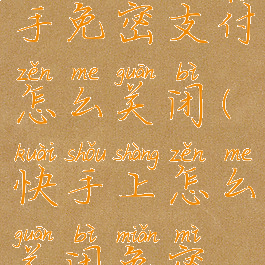 手免密支付
zěn me guān bì
怎么关闭(
kuài shǒu shàng zěn me
快手上怎么
guān bì miǎn mì
关闭免密